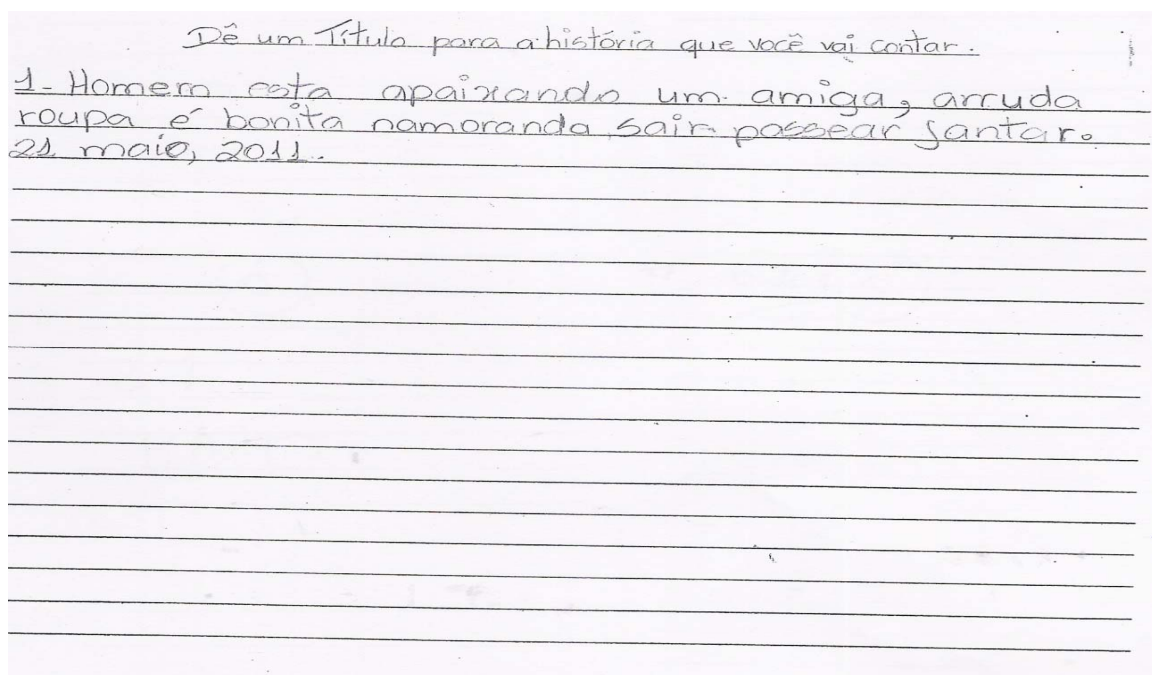 Dê um Título para a história que você vai contar.
1- Homem esta apaixando um amiga, arruda
roupa é bonita namoranda sair passear jantar.
21 maio, 2011.